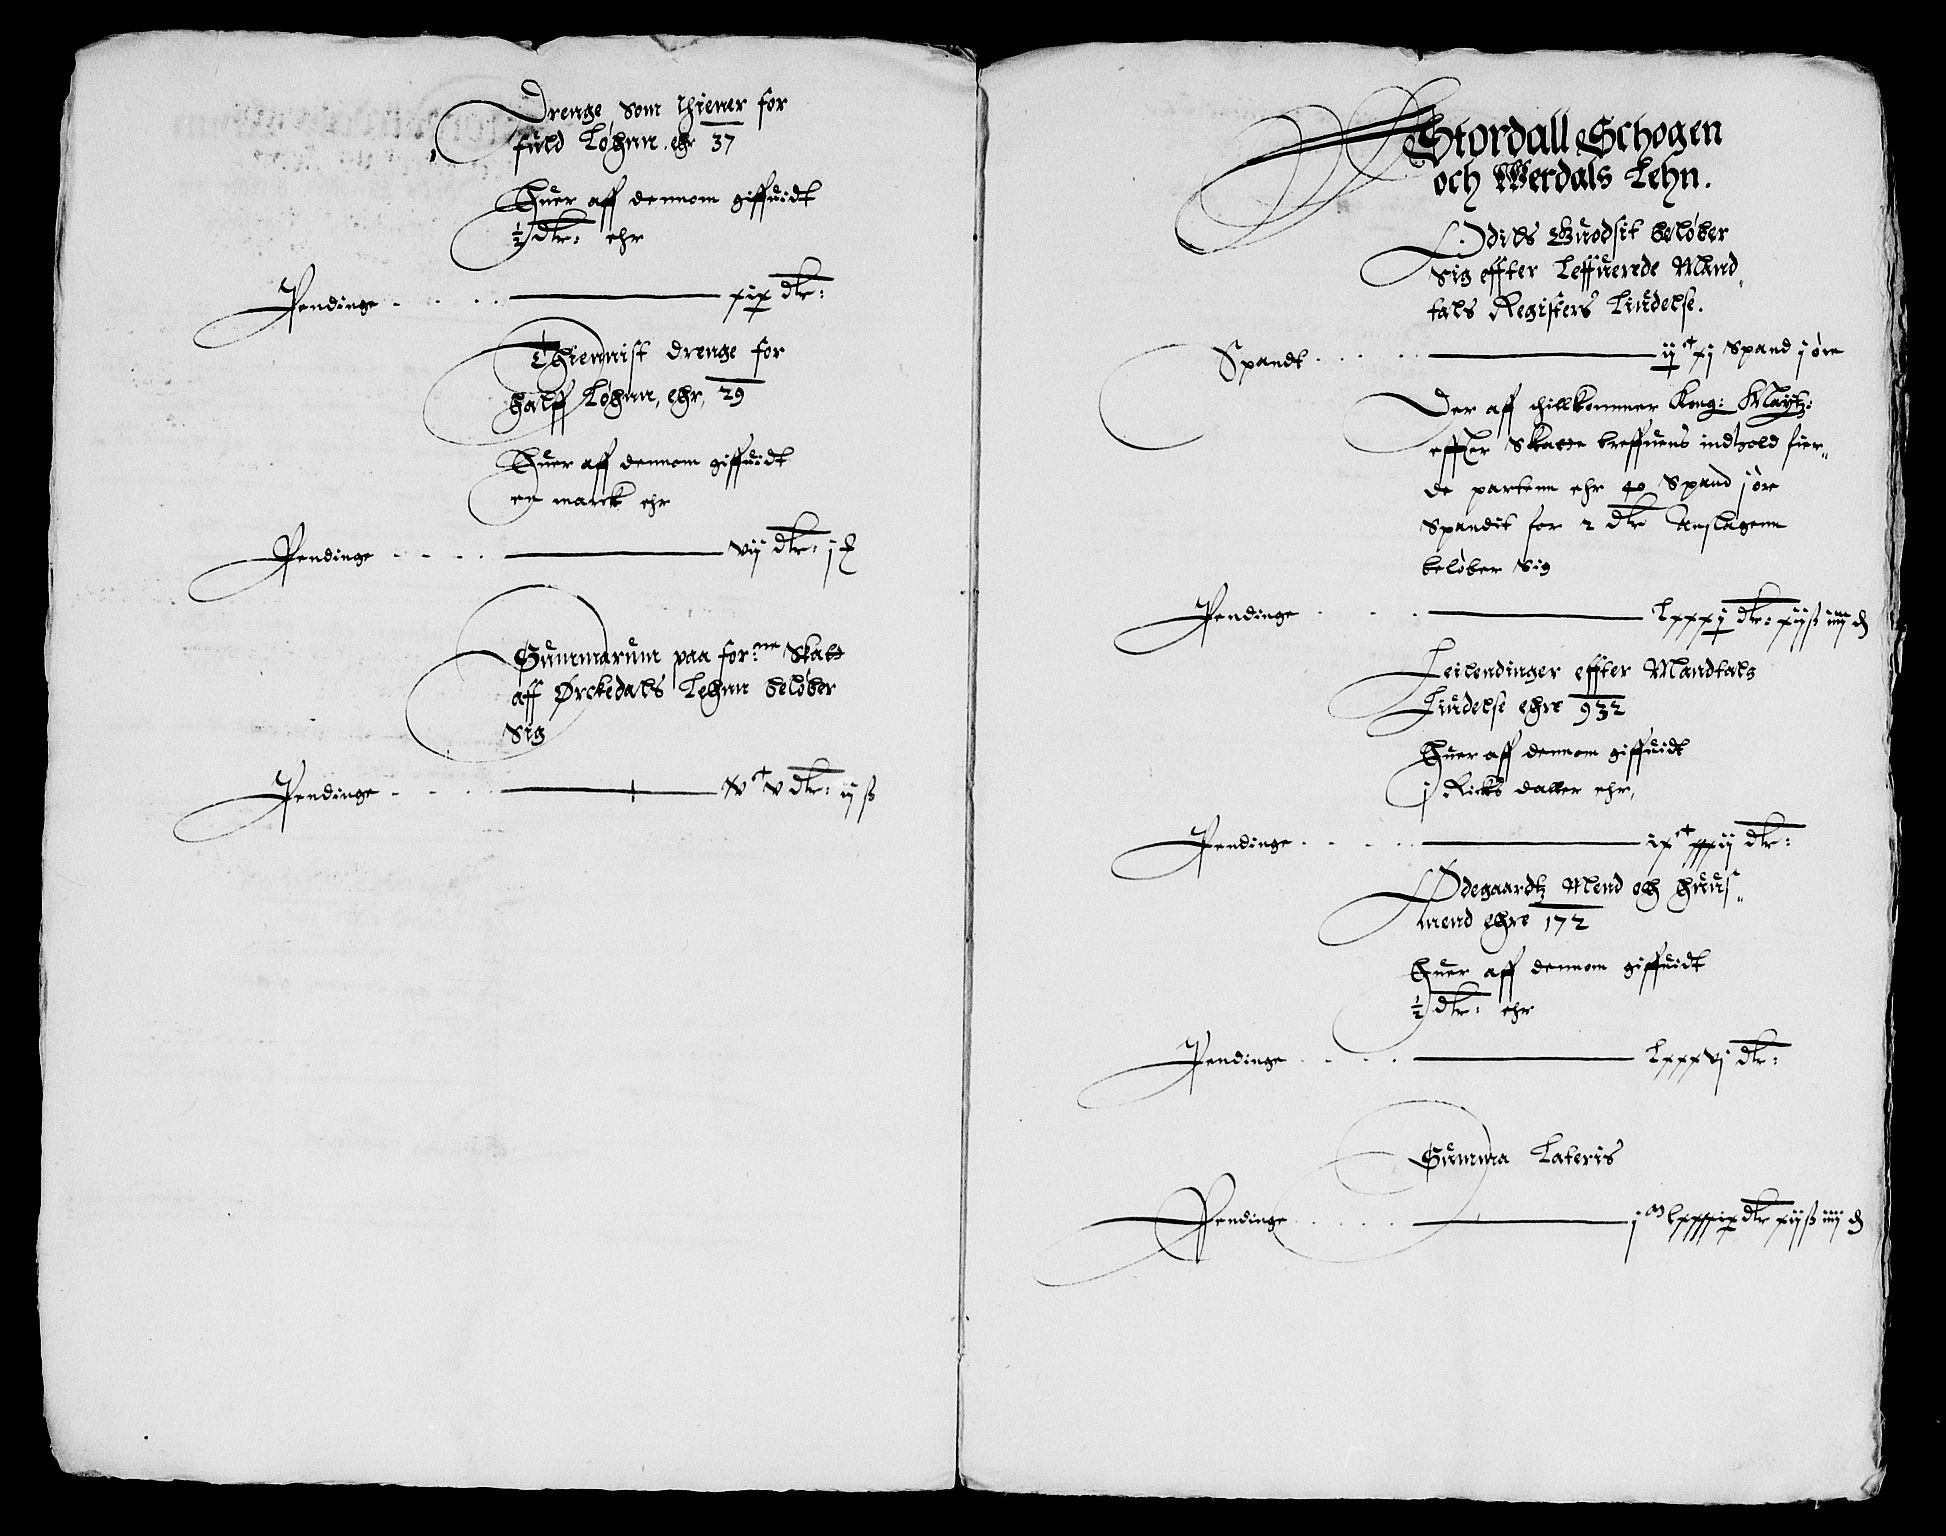 Drenge som thiener for
fuld Løhnn. ehr 37
Huer aff dennom giffuidt
½ dlr: ehr
Pendinge - - - xix dlr:
Thiennist drenge for
halff Løhnn, ehr, 29
Huer aff dennom giffuidt
en marck ehr
Pendinge - - - vij dlr: j
Summarum paa for:ne Skatt
aff Ørckedals Lehnn beløber
sig
Pendinge - - - v dlr: ij ß
Stordall Schogen
och Werdals Lehn.
Odils Guodsit beløber
sig effter Leffuerede Mand,
tals Registers Liudelse.
Spandt - - - Spand j øre
Der aff thillkommer Kong: Maytz:
effter Skatte breffuens indhold fier„
de partenn ehr 40 Spand j øre
Spandit for 2 dlr Anslagenn
beløber sig
Pendinge - - - lxxxj dlr: xijß iiij d
Leilendinger effter Mandtals
Liudelse ehre 932
Huer aff dennom giffuidt
j Ricks daller ehr,
Pendinge - - - ixᶜ xxxij dlr:
Ødegaardtz Mend och huus„
mend ehre 172
Huer aff dennom giffuidt
½ dlr: ehr
Pendinge - - - lxxxvj dlr:
Summa Lateris
Pendinge - - - jᵐ lxxxxix dlr xijß iiij d